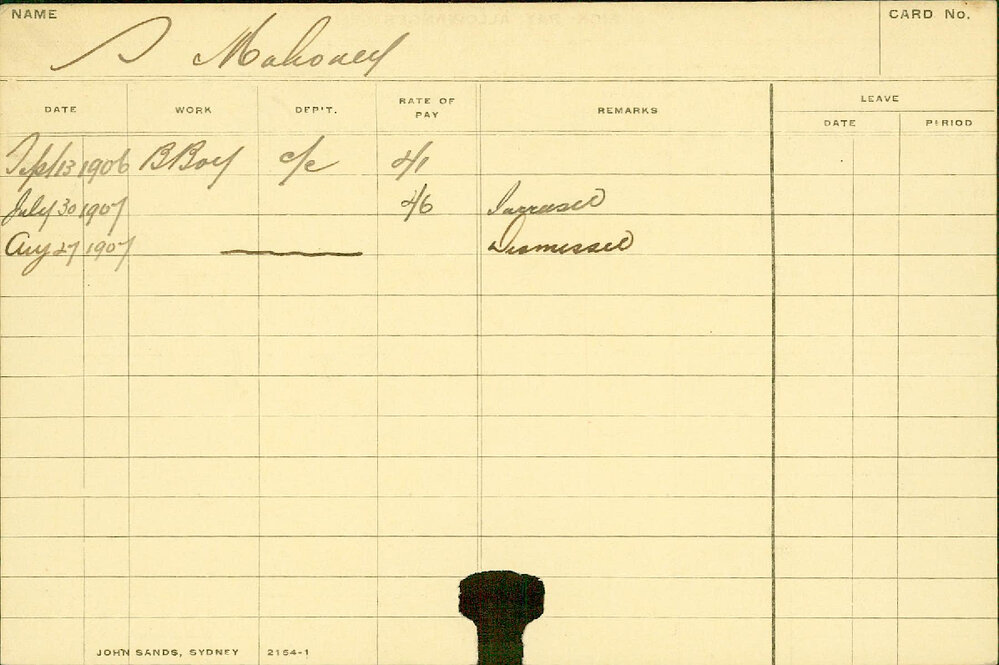 NAME
CARD No.
S Mahoney
DATE WORK DEP'T. RATE OF PAY REMARKS LEAVE
DATE PERIOD
Sept 13 1906 B Boy c/c 4/1
July 30 1907 4/6
Aug 27 1907 Dismissed
JOHN SANDS, SYDNEY 2154-1